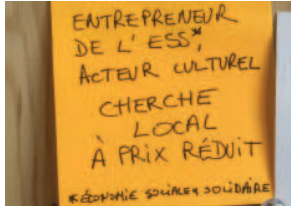 ENTREPRENEUR
DE L'ESS*,
ACTEUR CULTUREL
CHERCHE
LOCAL
À PRIX RÉDUIT
*ÉCONOMIE SOCIALE & SOLIDAIRE